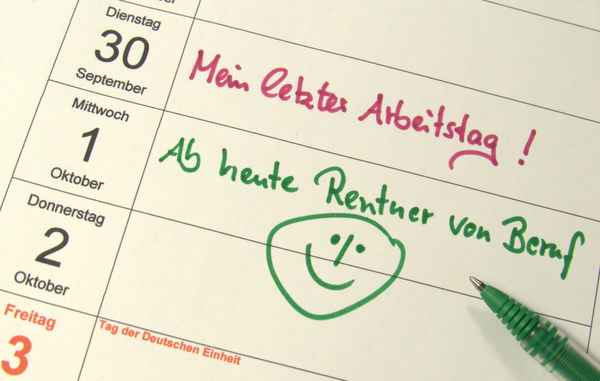 Dienstag
30
September
Mein letzter Arbeitstag !
Mittwoch
1
Oktober
Ab heute Rentner von Beruf
Donnerstag
2
Oktober
Freitag
3
Tag der Deutschen Einheit